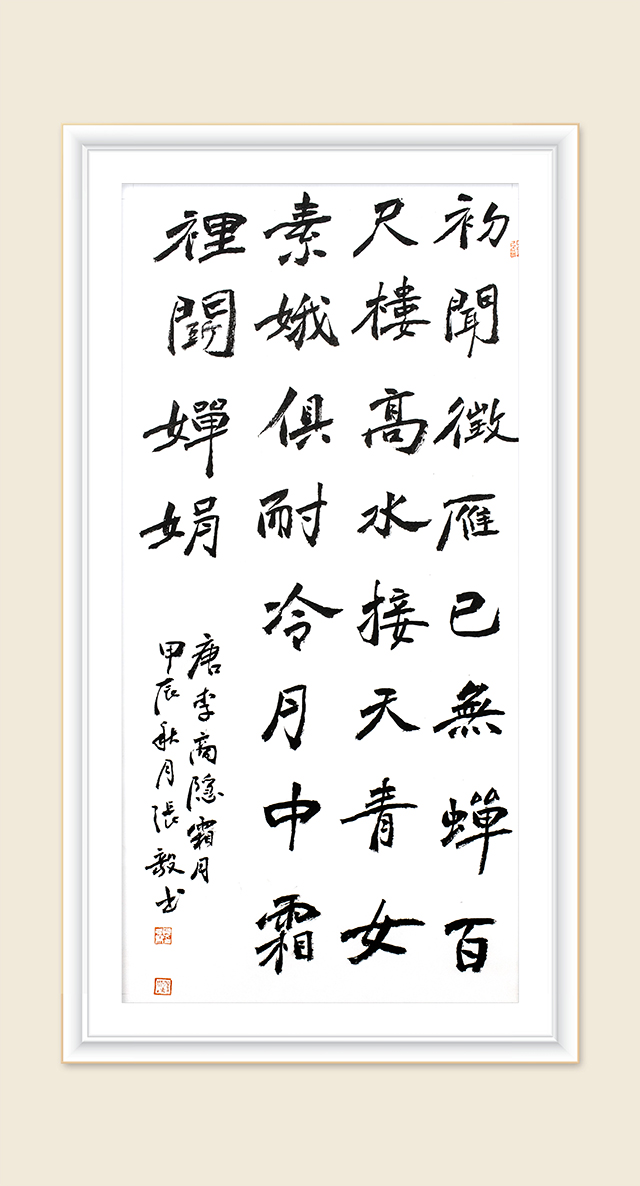 初聞徵雁已無蟬百
尺樓高水接天青女
素娥俱耐冷月中霜
裡鬭嬋娟
唐李商隐霜月
甲辰秋月張毅书